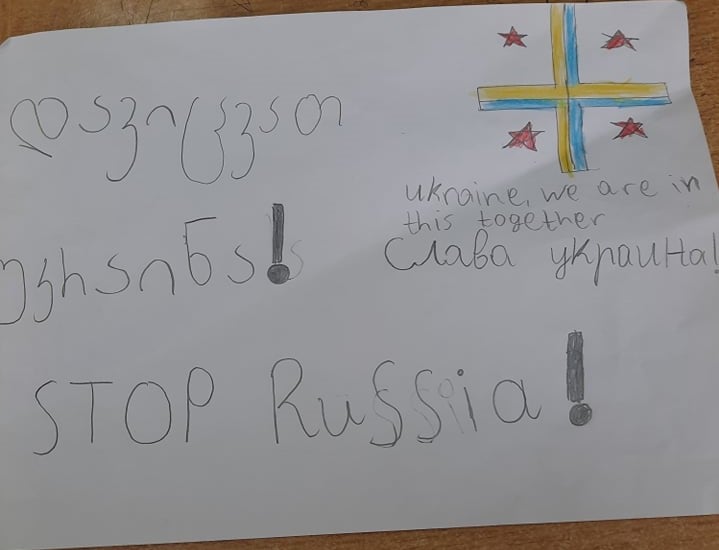 დავიცვათ
უკრაინა!
ukraine, we are in
this together
Слава украина!
STOP Russia!